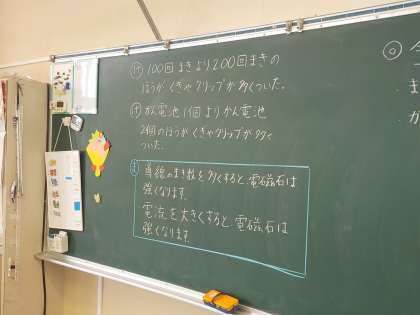 け 100回まきより200回まきの
ほうがくぎやクリップが多くついた。
け かん電池1個よりかん電池
2個のほうがくぎやクリップが多く
ついた。
ま 導線のまき数を多くすると、電磁石は
強くなります。
電流を大きくすると、電磁石は
強くなります。
◎